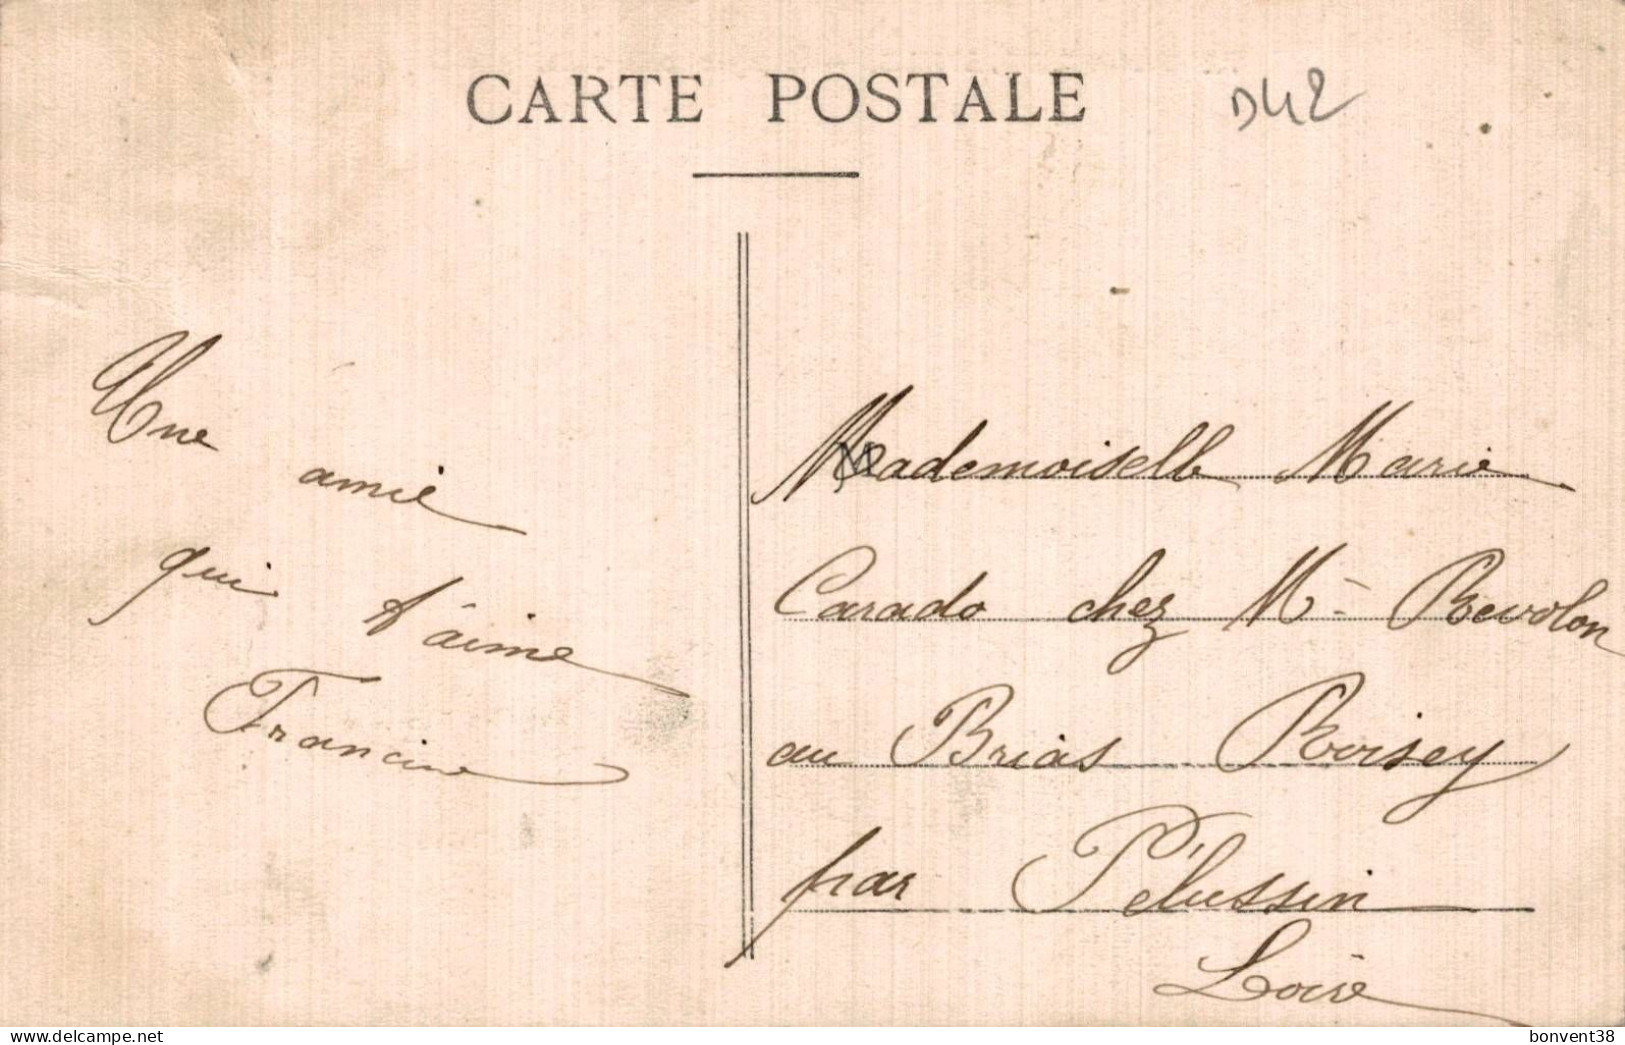 CARTE POSTALE
D42
Une
amie
qui t'aime
Francine
Mademoiselle Marie
Carado chez Mr Revolon
au Brias Roisey
par Pélussin
Loire
bonvent38